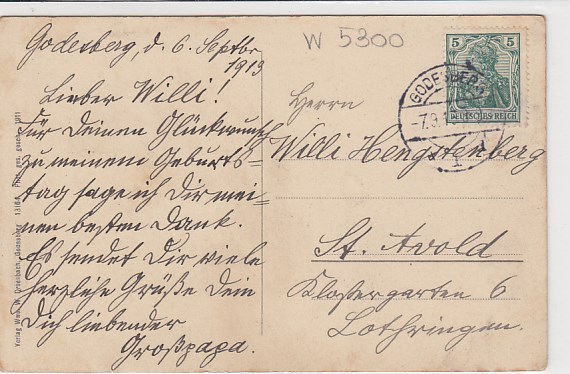 Godesberg, d. 6. Septbr.
1913
Lieber Willi!
Für Deinen Glückwunsch
zu meinem Geburts-
tag sage ich Dir mei-
nen besten Dank.
Es sendet Dir viele
herzliche Grüße Dein
Dich liebender
Großpapa.
W 5300
5 5
DEUTSCHES REICH
GODESBERG
-7.9.1
1
Herrn
Willi Hengstenberg
St. Avold
Klostergarten 6
Lothringen.
Verlag Wilh. Godesberg 1911